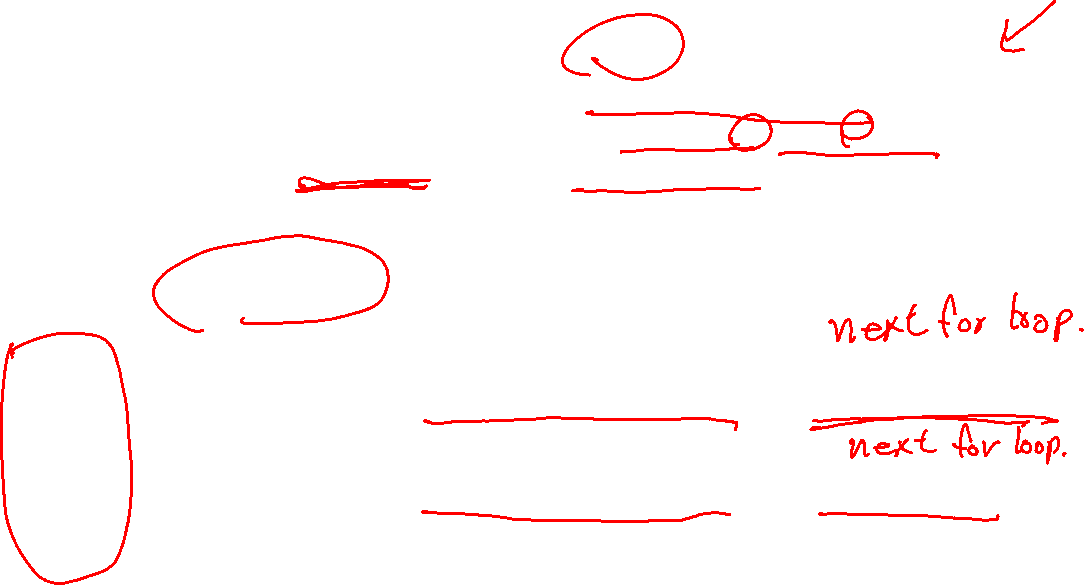 next for loop.
next for loop.